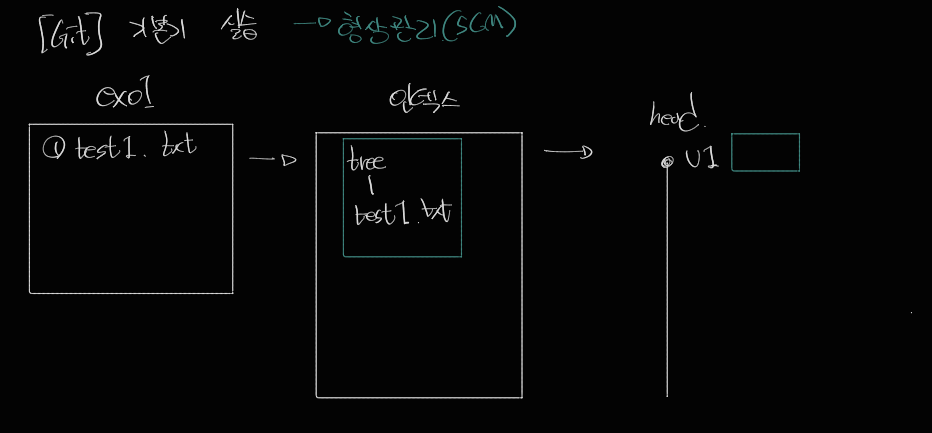 [Git] 기본기 실습 → 형상관리(SCM)
ex01
① test1.txt
인덱스
tree
test1.txt
head.
V1